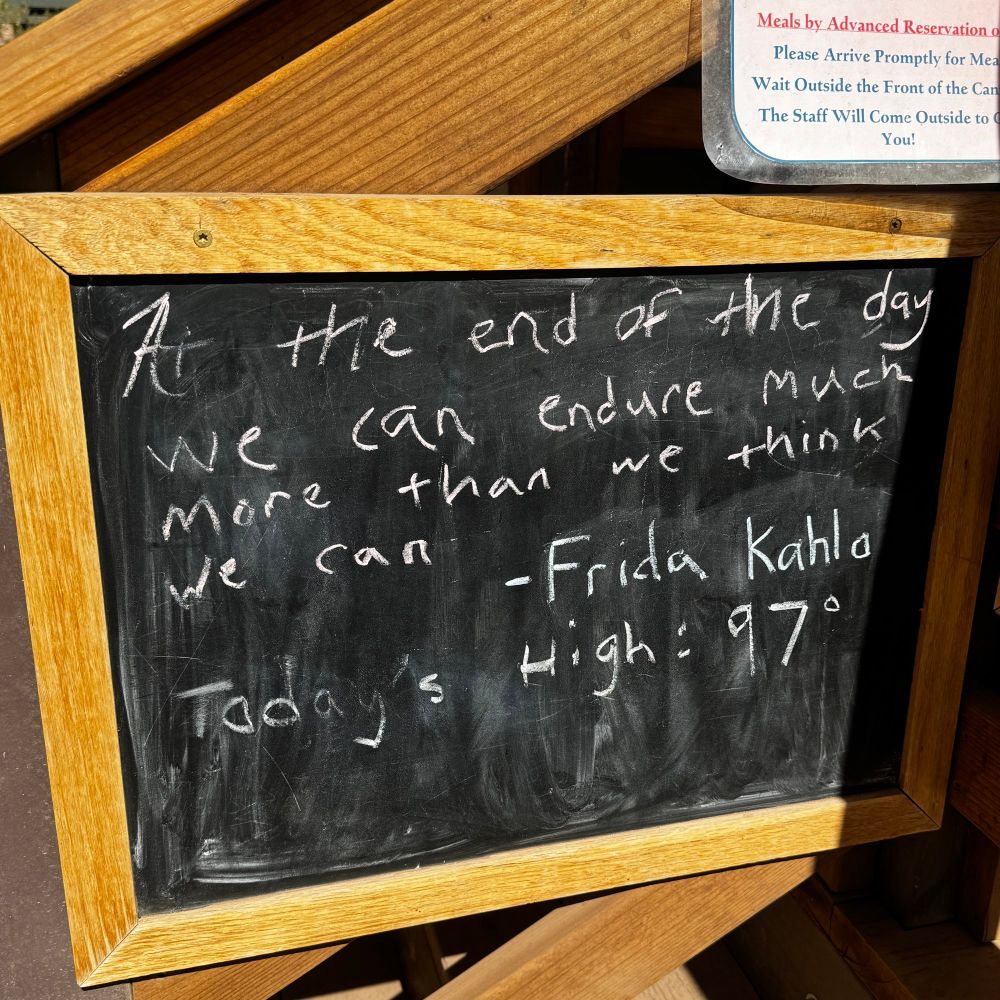 Meals by Advanced Reservation
Please Arrive Promptly for
Wait Outside the Front of the
The Staff Will Come Outside to
You!
At the end of the day
we can endure much
more than we think
we can
-Frida Kahlo
Today's High: 97°